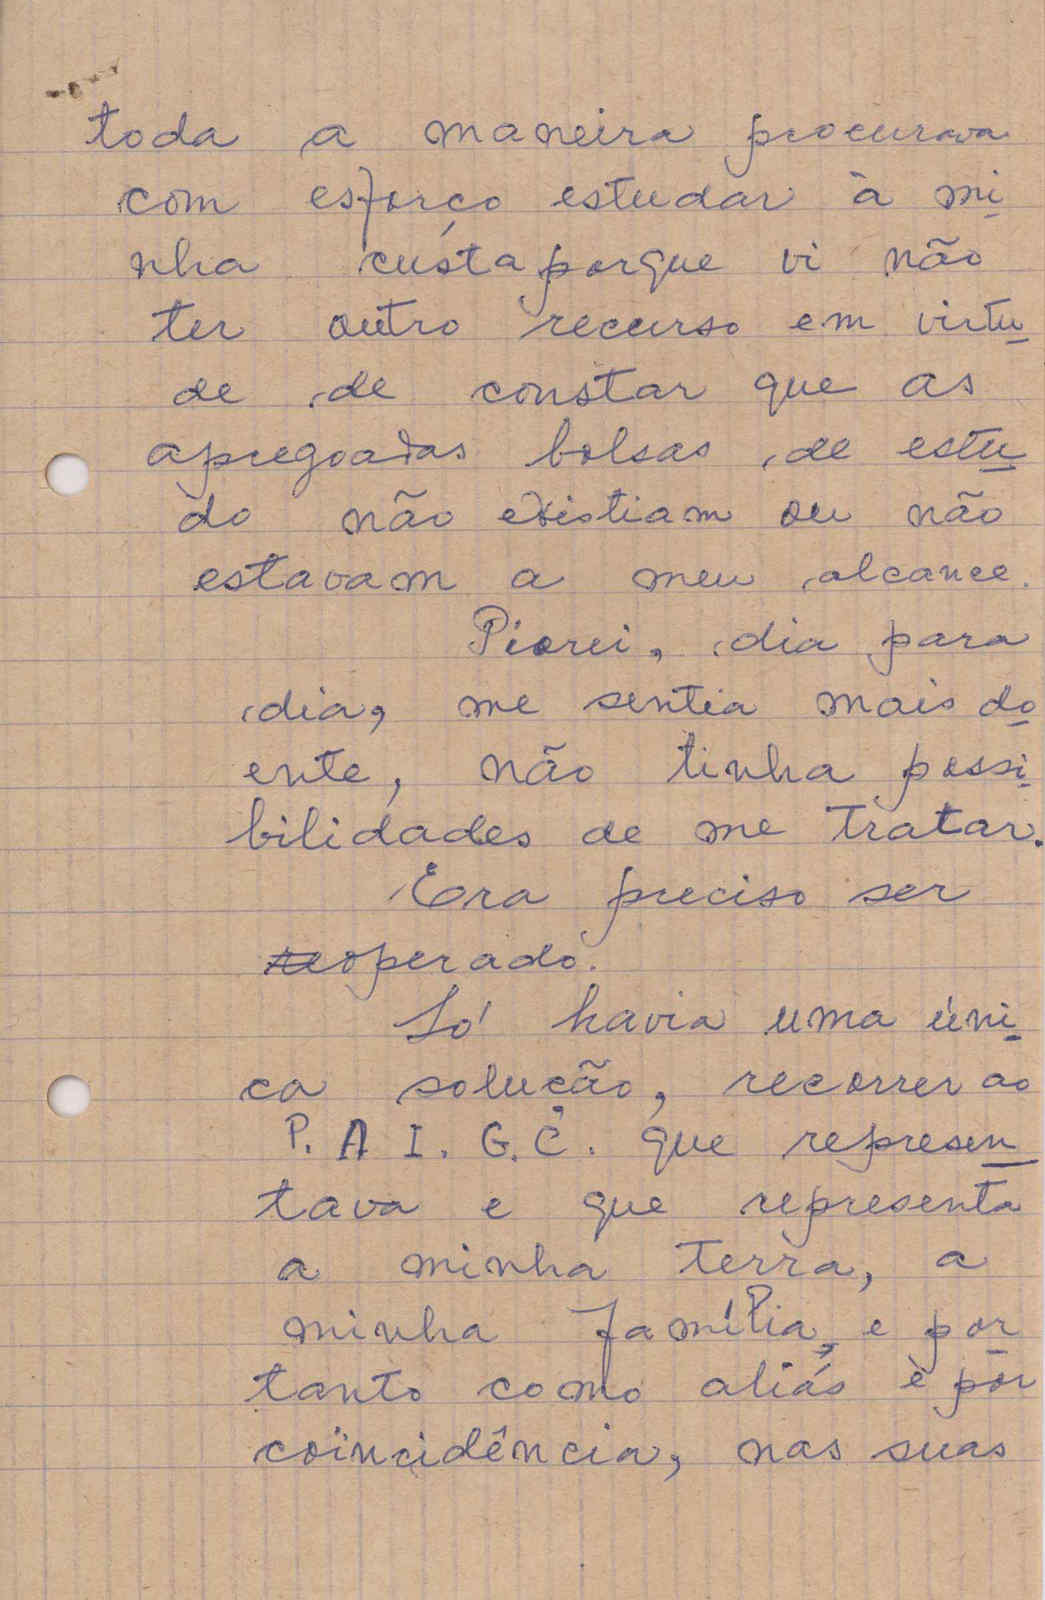 toda a maneira procurava
com esforço estudar à mi
nha custa porque vi não
ter outro recurso em virtu
de de constar que as
apregoadas bolsas de estu
do não existiam ou não
estavam a meu alcance.
Piorei, dia para
dia, me sentia mais do
ente, não tinha possi
bilidades de me tratar.
Era preciso ser
operado.
Só havia uma úni
ca solução, recorrer ao
P. A I. G. C. que represen
tava e que representa
a minha terra, a
minha família, e por
tanto como aliás è por
coincidência, nas suas